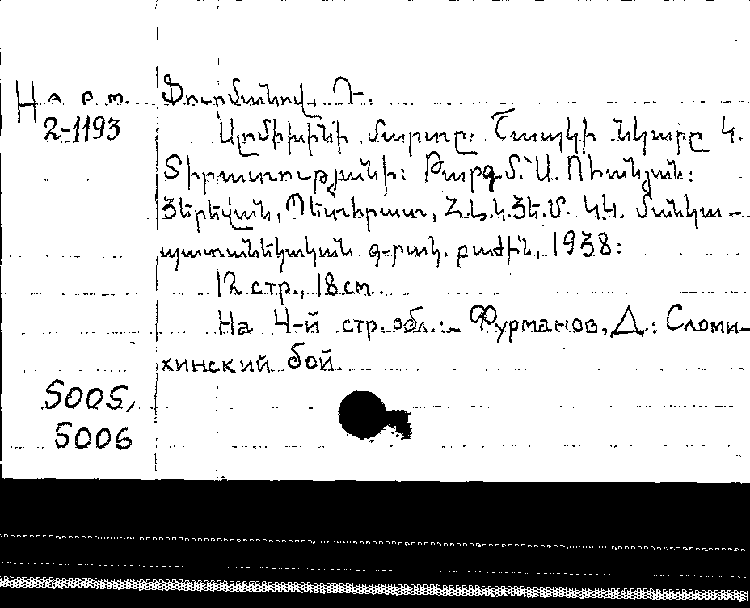 На р.т. Ֆուրմանով, Դ.
2-1193 Սլոմիխինի մարտը: Շապկի նկարը Կ.
Տիրատուրյանի: Թարգմ.՝ Ս. Ունանյան:
Յերեվան, Պետհրատ, Հ.Լ.Կ.Յե.Մ. ԿԿ. մանկա-
պատանեկական գ-րակ. բաժին, 1938:
12 стр., 18 см
На 4-й стр. обл.: Фурманов, Д.: Сломи-
хинский бой
5005,
5006